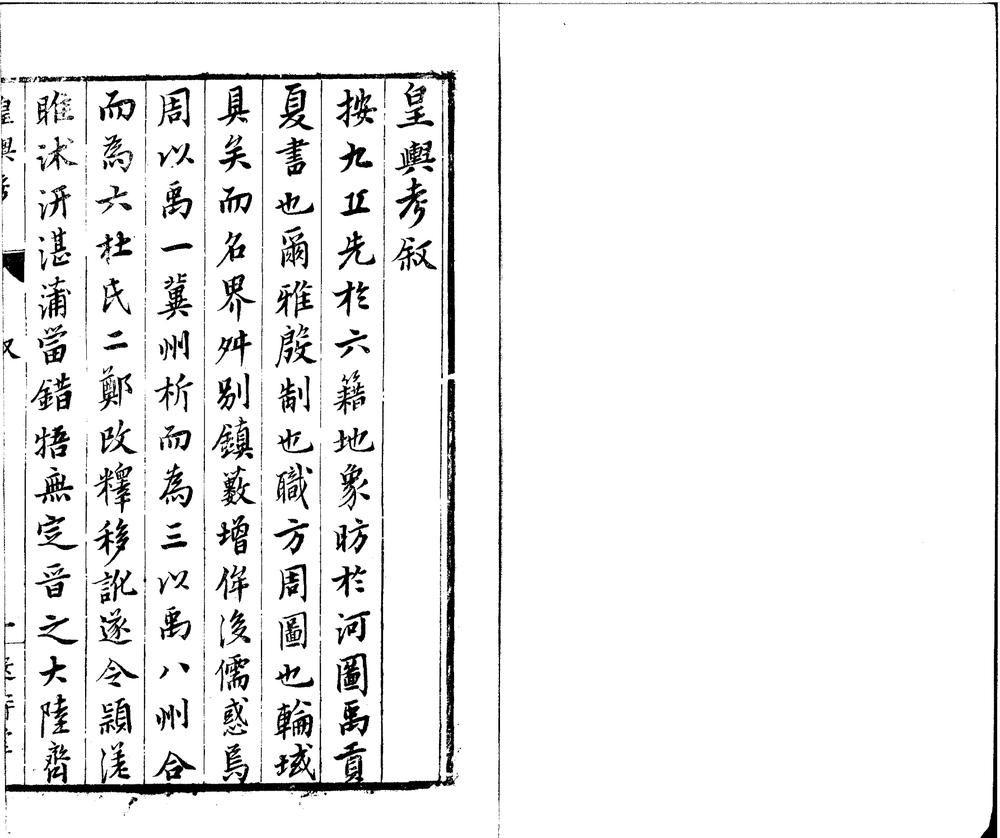 皇輿考叙
按九丘先於六籍地象昉於河圖禹貢
夏書也爾雅殷制也職方周圖也輪域
具矣而名界舛别鎮藪增侔後儒惑焉
周以禹一冀州析而為三以禹八州合
而為六杜氏二鄭改釋移訛遂令潁溠
睢沭汧湛蒲當錯牾無定晋之大陸齊
皇輿考
叙
一